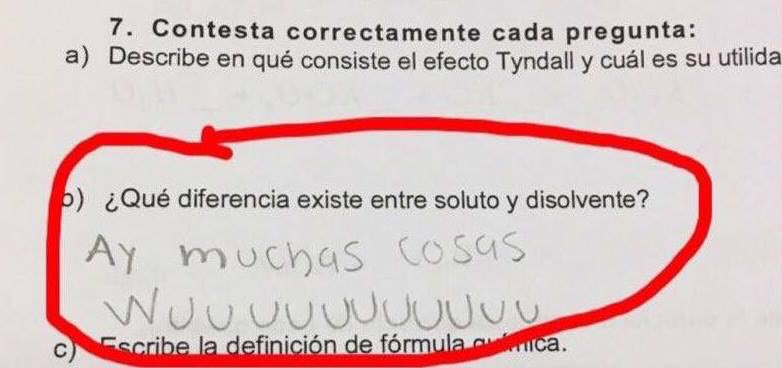 7. Contesta correctamente cada pregunta:
a) Describe en qué consiste el efecto Tyndall y cuál es su utilida
b) ¿Qué diferencia existe entre soluto y disolvente?
Ay muchas cosas
Wuuuuuuuuuuuu
c) Escribe la definición de fórmula química.